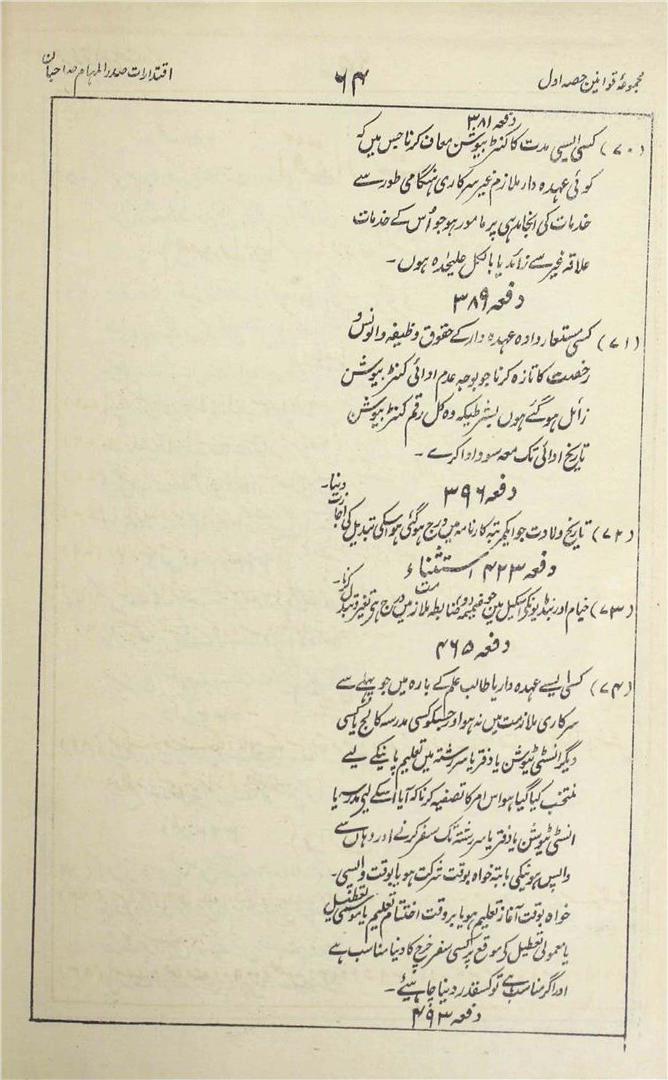 مجموعۂ قوانین حصہ اول
۶۴
اقتدارات صدر المہام صاحبان
دفعہ ۳۸۱
(۷۰) کسی ایسی مدت کا کنٹریبیوشن معاف کرنا جس میں کہ
کوئی عہدہ دار ملازم غیر سرکاری ہنگامی طور سے
خدمات کی انجامدہی پر مامور ہو جو اُس کے خدمات
علاقہ غیر سے زائد یا بالکل علیحٰدہ ہوں۔
دفعہ ۳۸۹
(۷۱) کسی مستعار دادہ عہدہ دار کے حقوق وظیفہ والونس و
رخصت کا تازہ کرنا جو بوجہ عدم ادائی کنٹریبیوشن
زائل ہو گئے ہوں بشرطیکہ وہ کل رقم کنٹریبیوشن
تاریخ ادائی تک معہ سود ادا کرے۔
دفعہ ۳۹۶
(۷۲) تاریخ ولادت جو ایکمرتبہ کارنامہ میں درج ہو گئی ہو اسکی تبدیل کی اجازت دینا۔
دفعہ ۴۲۳ استثناء
(۷۳) خیام اور بنڈیونکی اسکیل میں جو ضمیمہ (و) ضابطہ ملازمت میں درج ہی تغیر و تبدل کرنا۔
دفعہ ۴۶۵
(۷۴) کسی ایسے عہدہ دار یا طالب علم کے بارہ میں جو پہلے سے
سرکاری ملازمت میں نہ ہو اور جسکو کسی مدرسہ کالج یا کسی
دیگر انسٹی ٹیوشن یا دفتر یا سررشتہ میں تعلیم پانیکے لیے
منتخب کیا گیا ہو اس امر کا تصفیہ کرنا کہ آیا اسکے لیے مدرسہ یا
انسٹی ٹیوشن یا دفتر یا سررشتہ تک سفر کرنے اور وہاں سے
واپس ہونیکی بابتہ خواہ بوقت شرکت ہو یا بوقت واپسی۔
خواہ بوقت آغاز تعلیم ہو یا بروقت اختتام تعلیم یا موسمی تعطیل
یا معمولی تعطیل کی موقع پر کسی سفر خرچ کا دینا مناسب ہے
اور اگر مناسب ہے تو کسقدر دینا چاہیئے۔
دفعہ ۴۹۳